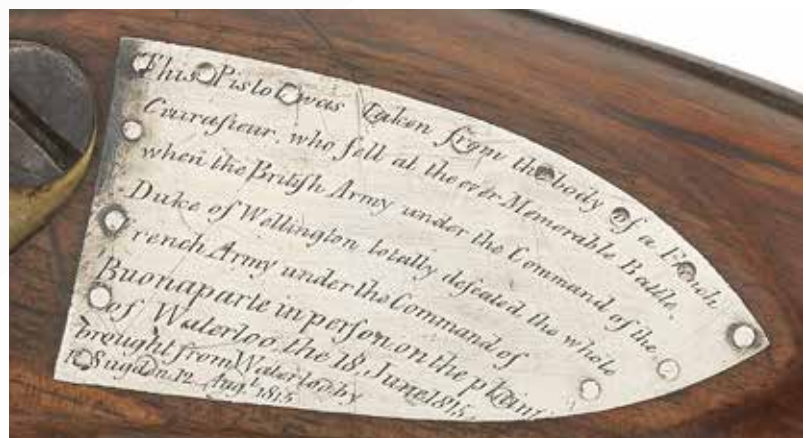 This Pistol was Taken from the body of a French
Cuirasieur, who fell at the ever Memorable Battle,
when the British Army under the Command of the
Duke of Wellington totally defeated the whole
French Army under the Command of
Buonaparte in person on the plains
of Waterloo the 18, June 1815,
brought from Waterloo by
Sugden 12 Augt. 1815